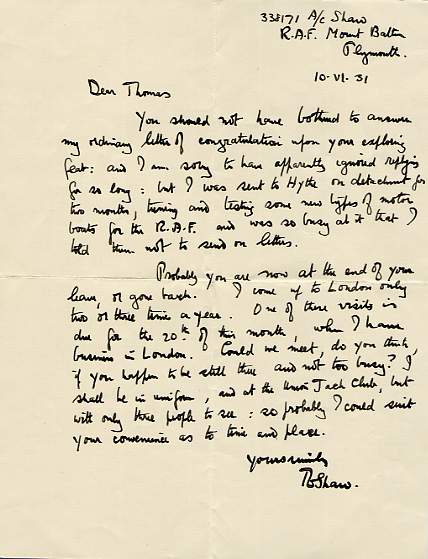 338171 A/c Shaw
R.A.F. Mount Batten
Plymouth.
10.VI.31
Dear Thomas
You should not have bothered to answer
my ordinary letter of congratulation upon your exploring
feat: and I am sorry to have apparently ignored replying
for so long: but I was sent to Hythe on detachment for
two months, tuning and testing some new types of motor
boats for the R.A.F. and was so busy at it that I
told them not to send on letters.
Probably you are now at the end of your
leave, or gone back. I come up to London only
two or three times a year. One of these visits is
due for the 20th of this month, when I have
business in London. Could we meet, do you think,
if you happen to be still there and not too busy? I
shall be in uniform, and at the Union Jack Club, but
with only three people to see: so probably I could suit
your convenience as to time and place.
Yours sincerely
TEShaw.